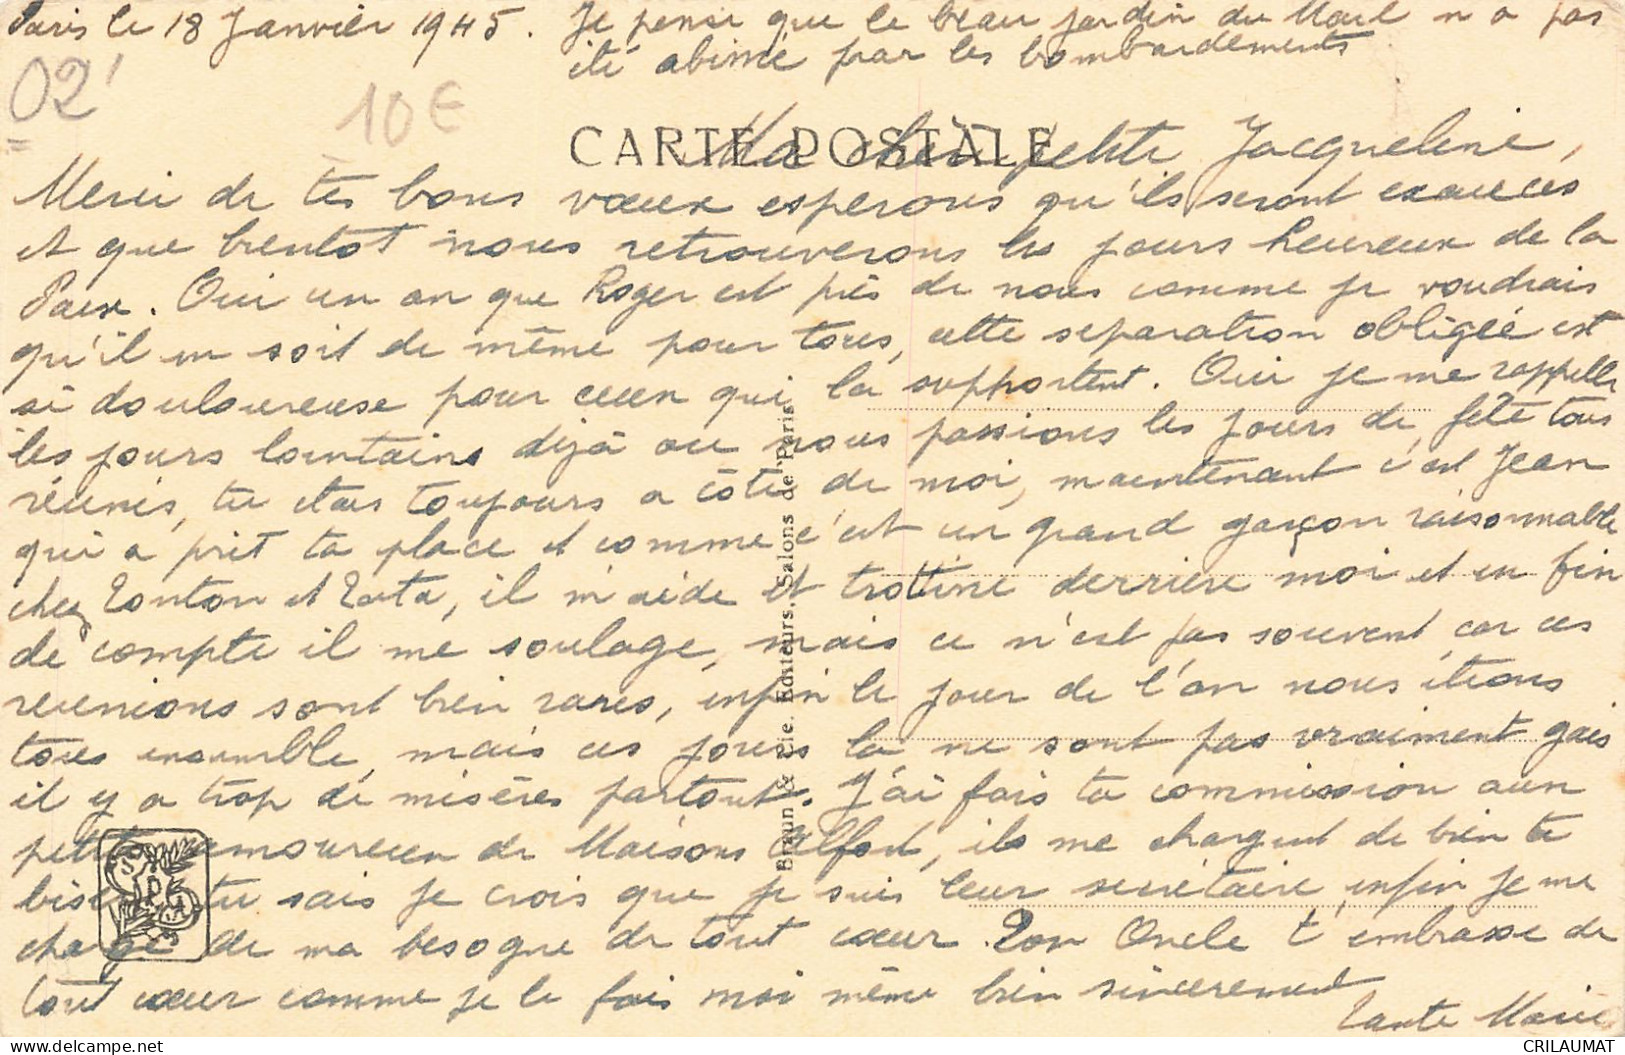 Paris le 18 Janvier 1945. Je pense que le beau jardin du Mail n a pas
été abimé par les bombardements
02
10€
CARTE POSTALE
Ma chère petite Jacqueline,
Merci de tes bons vœux esperons qu'ils seront exaucés
et que bientot nous retrouverons les jours heureux de la
Paix. Oui un an que Roger est près de nous comme je voudrais
qu'il en soit de même pour tous, cette separation obligée est
si douloureuse pour ceux qui la supportent. Oui je me rappelle
les jours lointains déjà ou nous passions les jours de fête tous
réunis, tu étais toujours a côté de moi, maintenant c'est Jean
qui a prit ta place et comme c'est un grand garçon raisonnable
chez Tonton et Tata, il m'aide et trottine derriere moi et en fin
de compte il me soulage, mais ce n'est pas souvent, car ces
reunions sont bien rares, enfin le jour de l'an nous étions
tous ensemble, mais ces jours la ne sont pas vraiment gais
il y a trop de misères partout. J'ai fais ta commission aux
petits amoureux de Maisons Alfort, ils me chargent de bien te
tu sais je crois que je suis leur secrétaire, enfin je me
charge de ma besogne de tout cœur. Ton Oncle t'embrasse de
tout cœur comme je le fais moi même bien sincerement
Tante Marie
Braun & Cie, Editeurs, Salons de Paris
CRILAUMAT